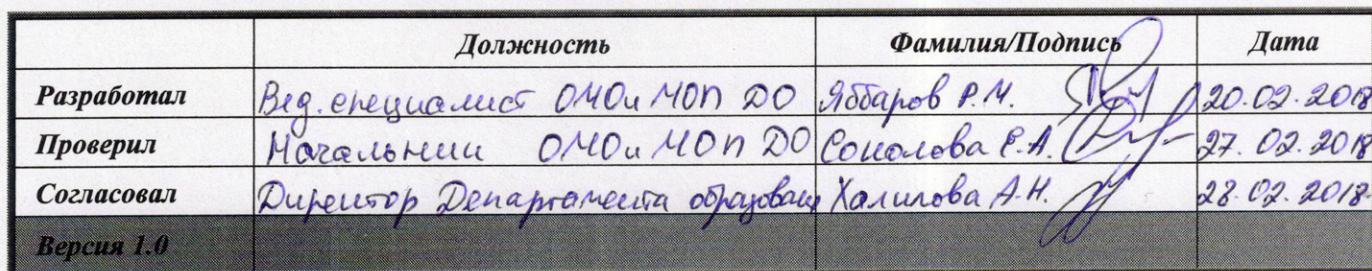 Должность Фамилия/Подпись Дата
Разработал Вед. специалист ОМОиМОП ДО Яббаров Р.М. 20.02.2018
Проверил Начальник ОМОиМОП ДО Соколова Е.А. 27.02.2018
Согласовал Директор Департамента образован Халилова А.Н. 28.02.2018
Версия 1.0